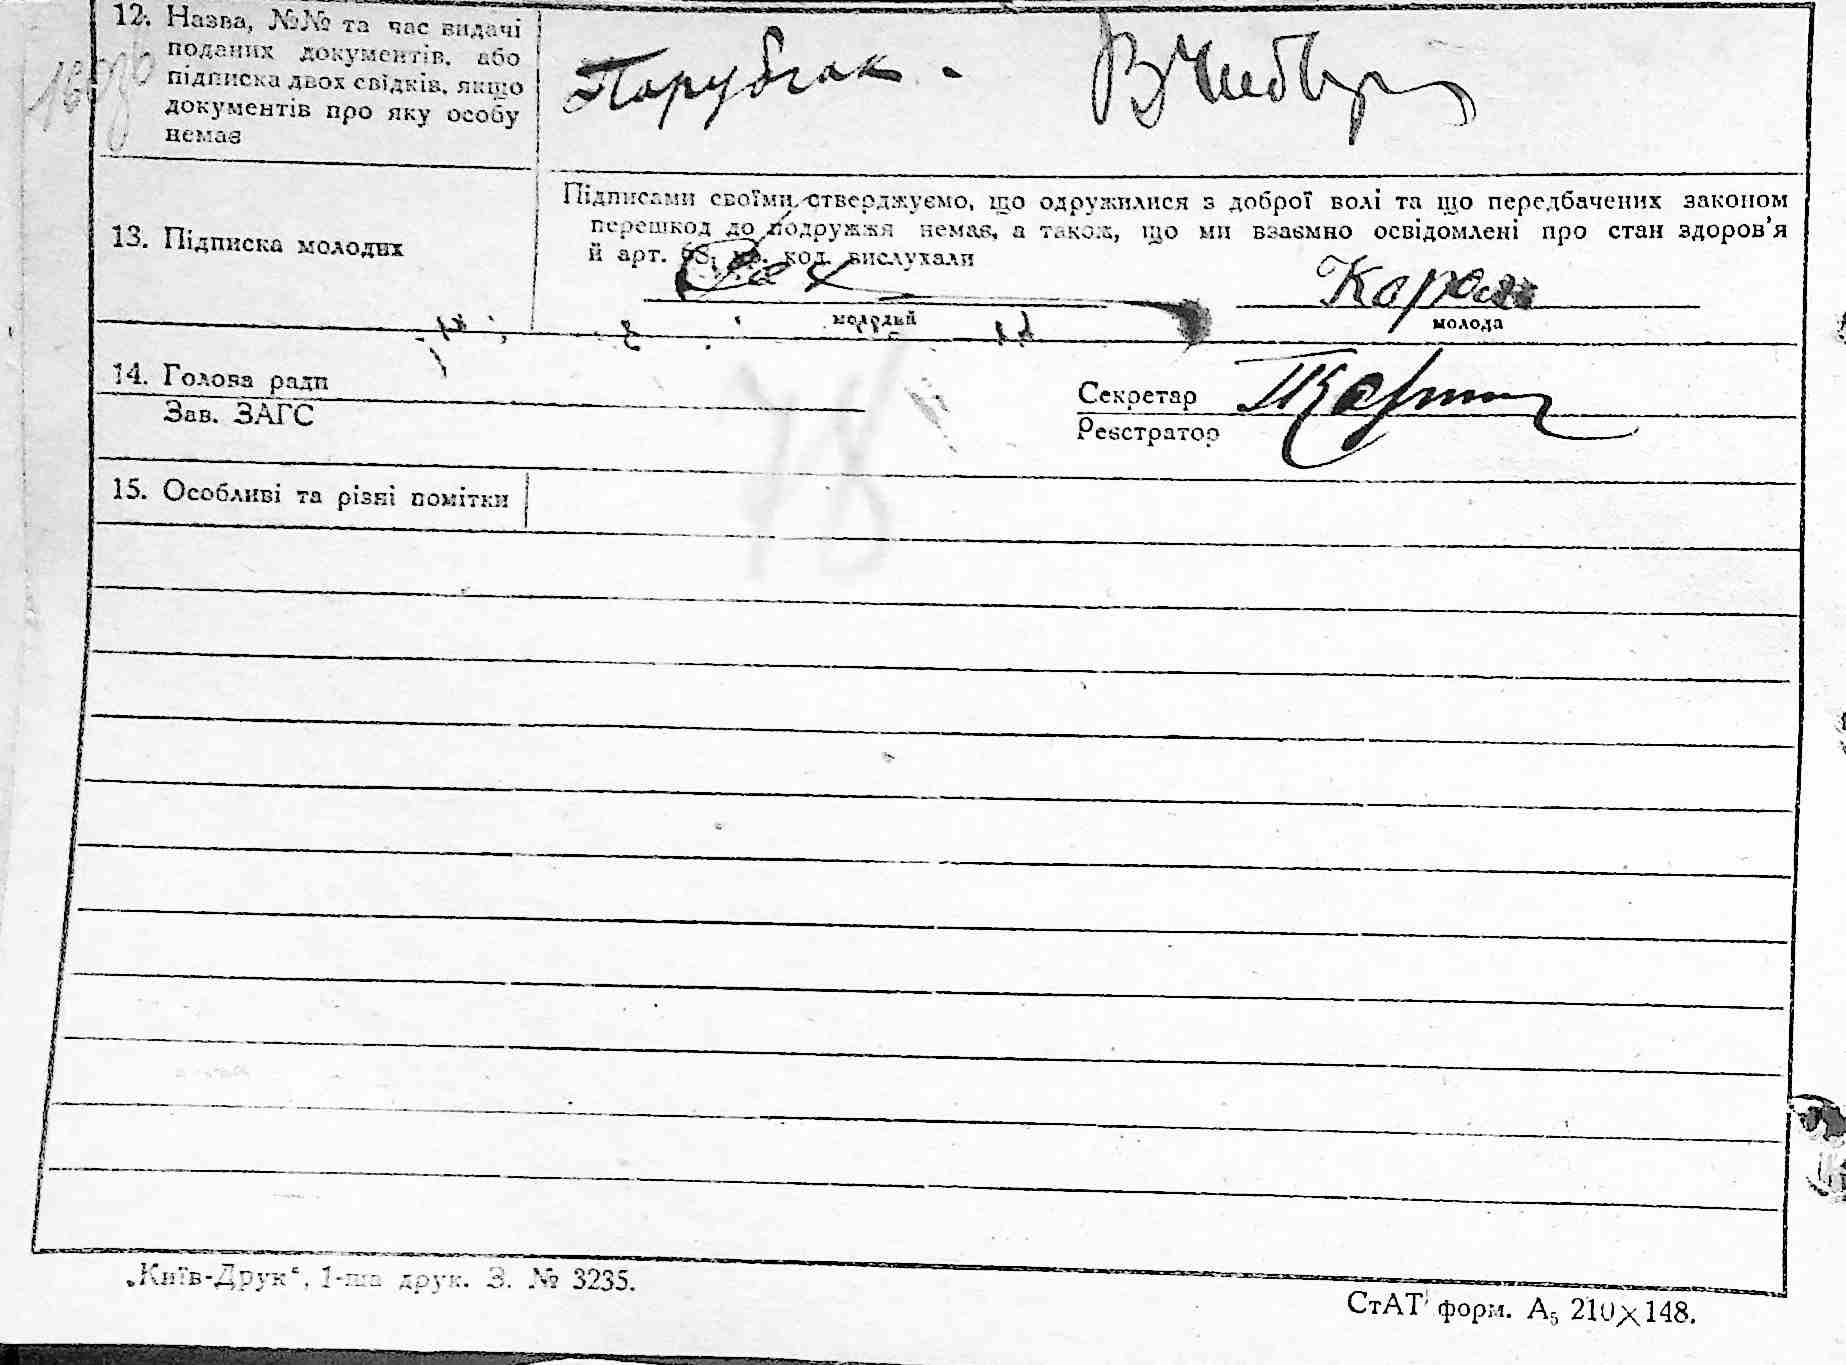 12. Назва, №№ та час видачі
поданих документів, або
підписка двох свідків, якщо
документів про яку особу
немає
Парубчак -
13. Підписка молодих
Підписами своїми стверджуємо, що одружилися з доброї волі та що передбачених законом
перешкод до подружжя немає, а також, що ми взаємно освідомлені про стан здоров'я
й арт. код. вислухали
молодий
молода
14. Голова ради
Зав. ЗАГС
Секретар
Реєстратор
15. Особливі та різні помітки
78
„Київ-Друк“, 1-ша друк. З. № 3235.
СтАТ форм. А5 210×148.